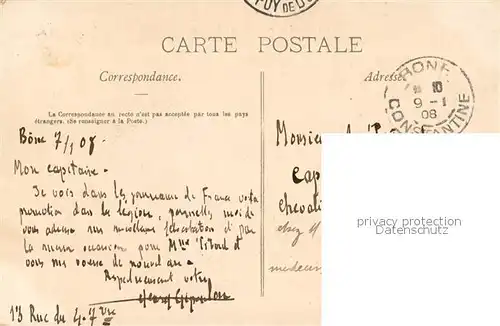 PUY DE D
CARTE POSTALE
Correspondance.
Adresse
La Correspondance au recto n'est pas acceptée par tous les pays
étrangers. (Se renseigner à la Poste.)
BONE
10
9-1
08
CONSTANTINE
Bône 7/1 08
Mon capitaine -
Je vois dans les journaux de France votre
promotion dans la légion, permettez moi de
vous adresser mes meilleures félicitations et par
la même occasion pour Mme et
vous mes voeux de nouvel an -
Respectueusement votre
13 Rue du 4 - 7bre
Monsieur
Cap
Chevali
chez M
médecin
privacy protection
delcampe.net